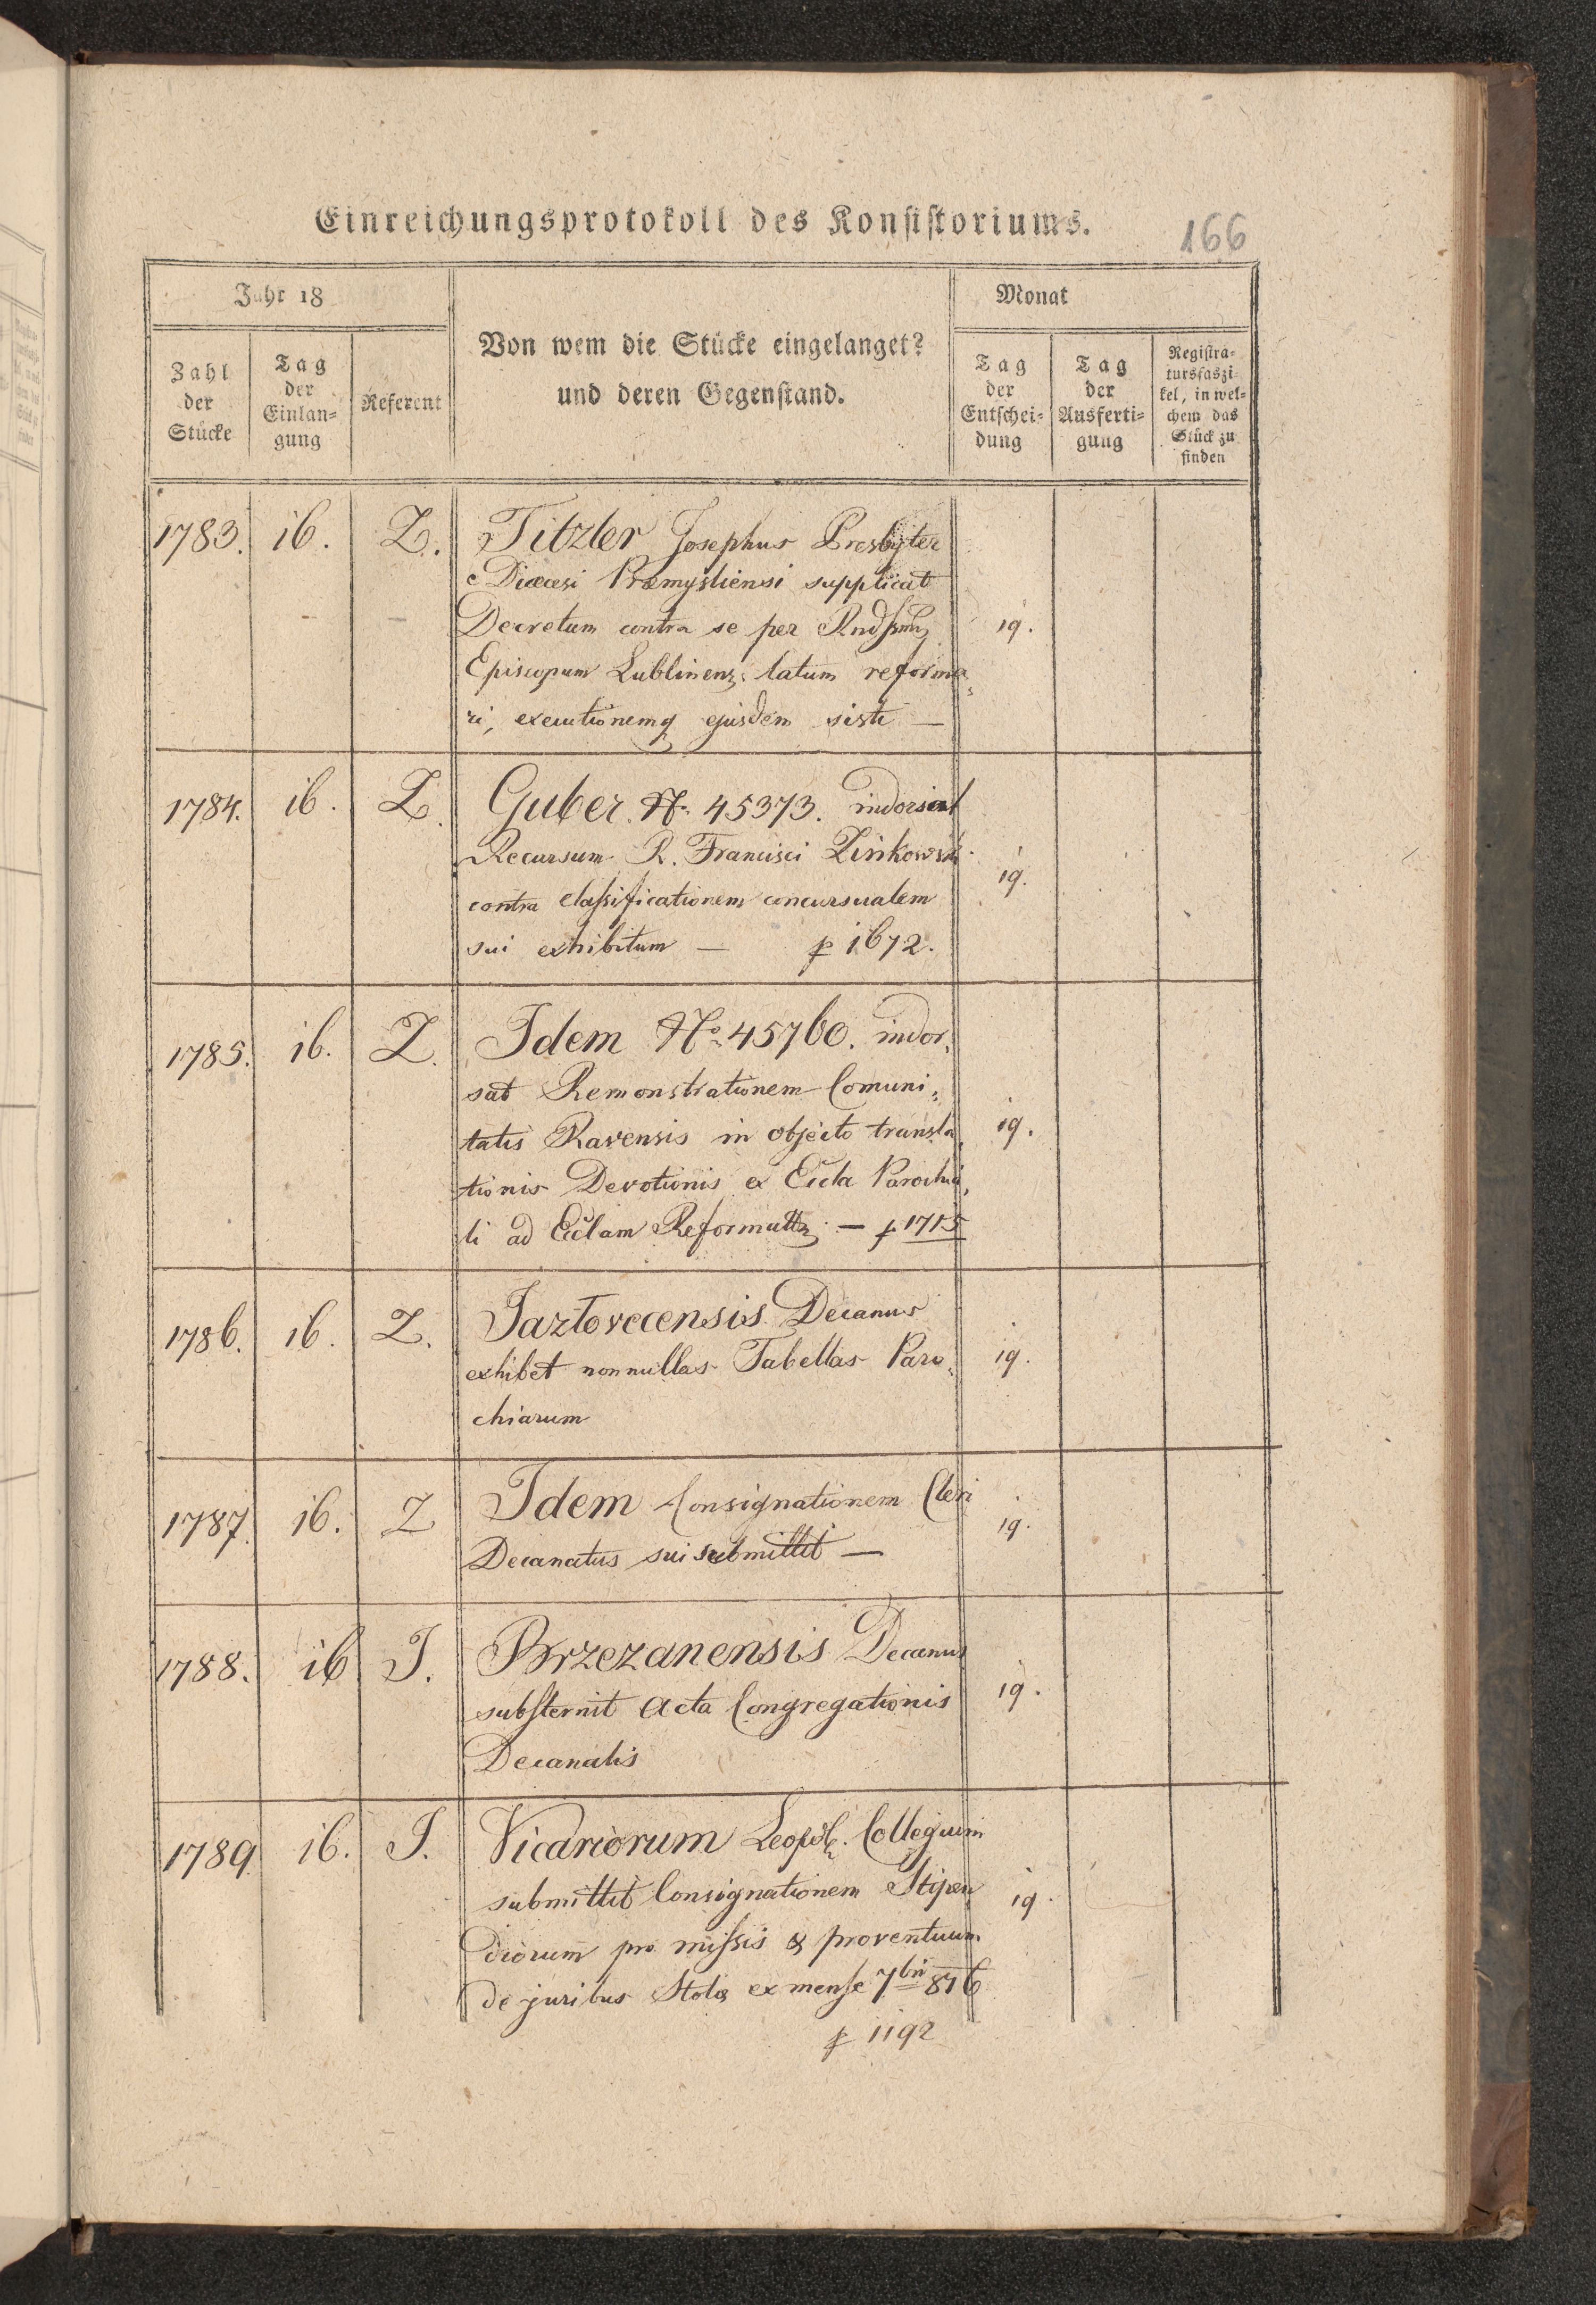 Einreichungsprotokoll des Konsistoriums.
166
Jahr 18
Monat
Von wem die Stücke eingelanget?
und deren Gegenstand.
Zahl
der
Stücke
Tag
der
Einlan=
gung
Referent
Tag
der
Entschei=
dung
Tag
der
Ausferti=
gung
Registra=
tursfaszi=
kel, in wel=
chem das
Stück zu
finden
1783. 16. Z. Titzler Josephus Presbyter
e Diœcesi Præmysliensi supplicat
Decretum contra se per 19.
Episcopum Lublinens latum reforma=
ri, executionemq ejusdem sisti —
1784. 16. Z. Guber. No 45373. indorsat
Recursum R. Francisci Zinkowski
contra classificationem concursualem 19.
sui exhibitum — p 1672.
1785. 16. Z. Idem No 45760. indor=
sat Remonstrationem Comuni=
tatis Ravensis in objecto transla= 19.
tionis Devotionis ex Eccla Parochia=
li ad Ecclam — p 1715
1786. 16. Z. Jaztovecensis Decanus
exhibet nonnullas Tabellas Paro= 19.
chiarum
1787. 16. Z Idem Consignationem Cleri
Decanatus sui submittit — 19.
1788. 16 J. Brzezanensis Decanus
substernit Acta Congregationis 19.
Decanalis
1789. 16. J. Vicariorum Leopol. Collegium
submittit Consignationem Stipen= 19.
diorum pro missis & proventuum
de juribus Stolæ ex mense 7bri 816
p 1192